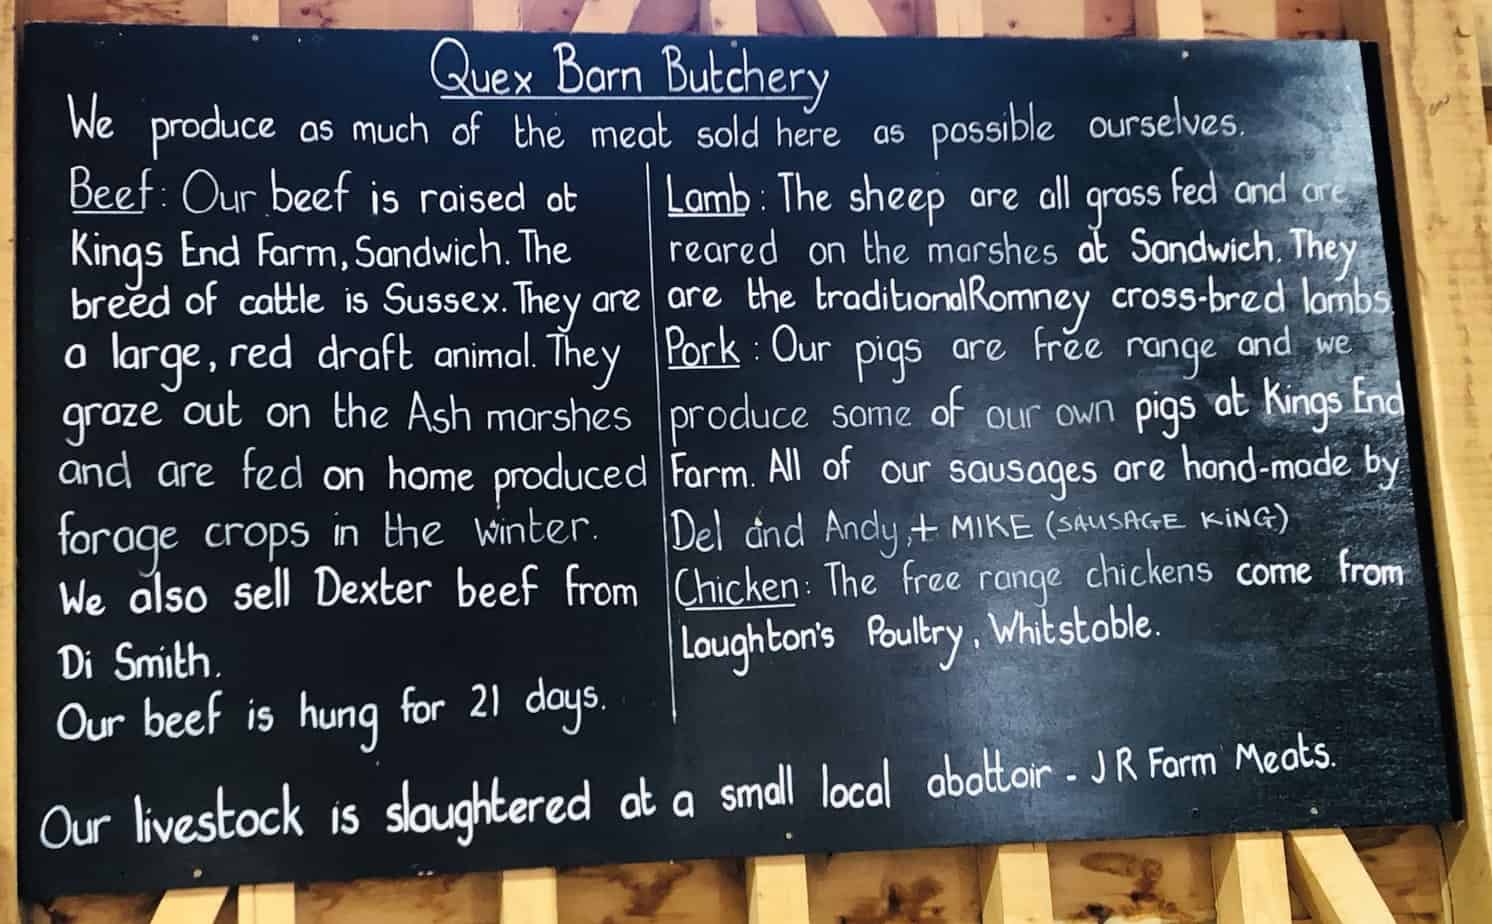 Quex Barn Butchery
We produce as much of the meat sold here as possible ourselves.
Beef: Our beef is raised at
Kings End Farm, Sandwich. The
breed of cattle is Sussex. They are
a large, red draft animal. They
graze out on the Ash marshes
and are fed on home produced
forage crops in the winter.
We also sell Dexter beef from
Di Smith.
Our beef is hung for 21 days.
Lamb: The sheep are all grass fed and are
reared on the marshes at Sandwich. They
are the traditional Romney cross-bred lambs.
Pork: Our pigs are free range and we
produce some of our own pigs at Kings End
Farm. All of our sausages are hand-made by
Del and Andy, + MIKE (SAUSAGE KiNG)
Chicken: The free range chickens come from
Loughton's Poultry, Whitstable.
Our livestock is slaughtered at a small local abattoir - J R Farm Meats.